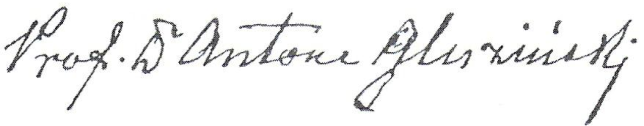 Prof. Dr Antoni Gluziński